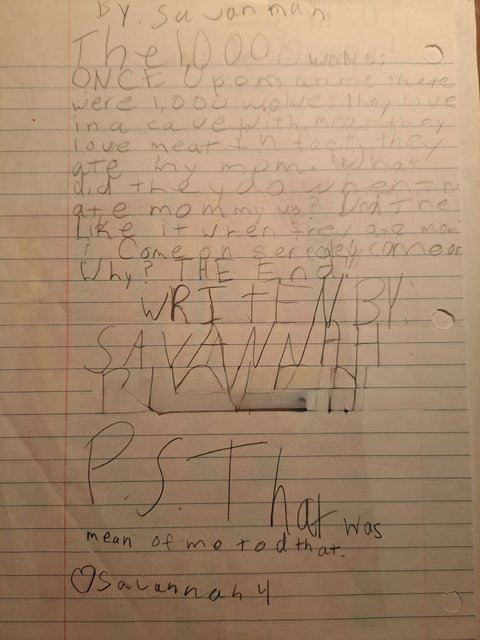 By: Savannah
The 1,000 wolves
ONCE Upon a time there
were 1,000 wolves they live
in a cave with meat they
love meat In fact, they
ate my mom. What
did they do when th
ate mommy up? Did the
Like it when they ate mom
? Come on seriosley come on
Why? THE End!
WRITTEN BY:
SAVANNAH
P.S. That was
mean of me to d that.
♡Savannah 4